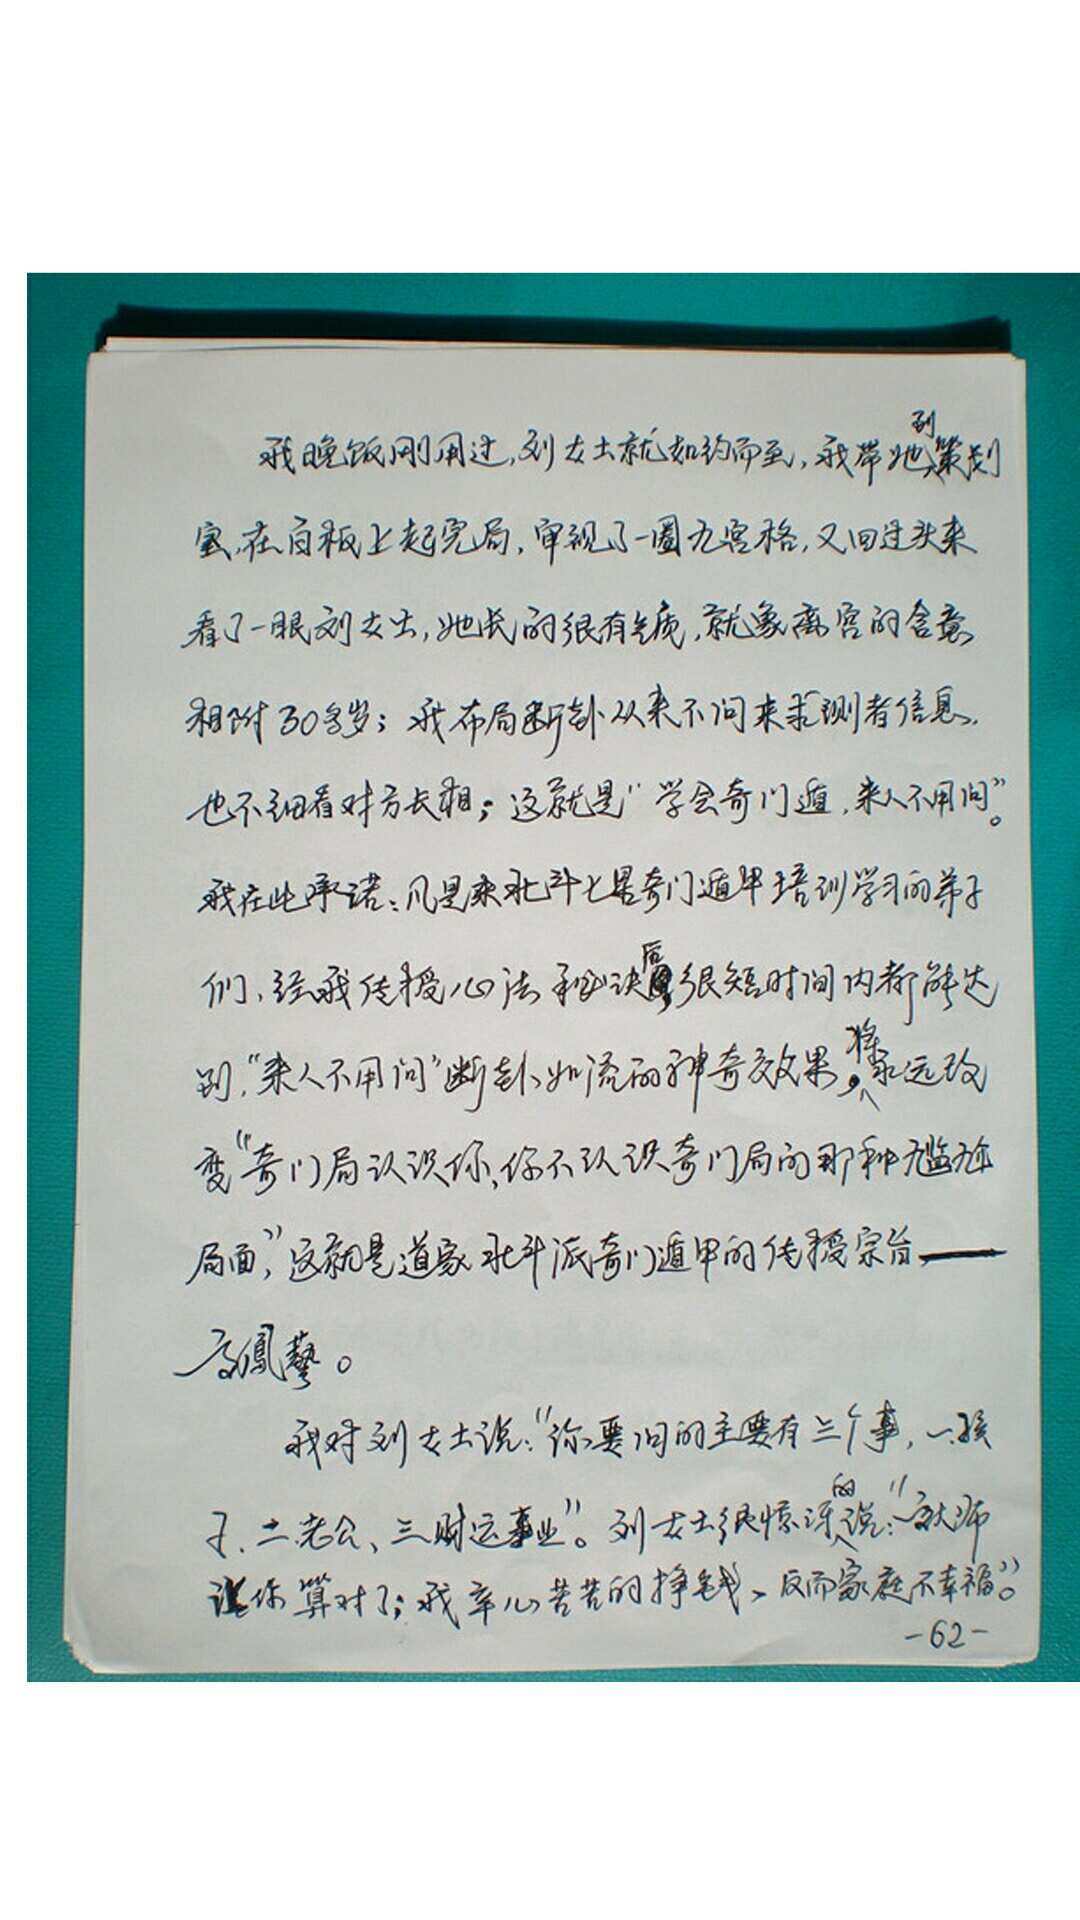 我晚饭刚用过，刘女士就如约而至，我带她到策划
室，在白板上起完局，审视了一圈九宫格，又回过头来
看了一眼刘女士，她长的很有气质，就象离宫的含意
相附30多岁；我布局断卦从来不问来求测者信息，
也不细看对方长相；这就是“学会奇门遁，来人不用问”。
我在此承诺：凡是来北斗七星奇门遁甲培训学习的弟子
们，经我传授心法秘诀后很短时间内都能达
到，“来人不用问”断卦如流的神奇效果，将永远改
变“奇门局认识你，你不认识奇门局的那种尴尬
局面”，这就是道家北斗派奇门遁甲的传授宗旨——
高鳳藝。
我对刘女士说：“你要问的主要有三个事，一.孩
子、二.老公、三.财运事业”。刘女士很惊讶的说：“大师
让你算对了；我辛辛苦苦的挣钱，反而家庭不幸福”。
-62-